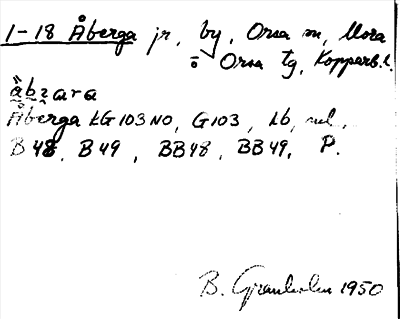 1-18 Åberga jr, by, Orsa sn, Mora
o Orsa tg, Kopparb. l.
åbʒara
Åberga KG 103 NO, G103, Lb,
B 48, B 49, BB48, BB49, P.
B. Granholm 1950